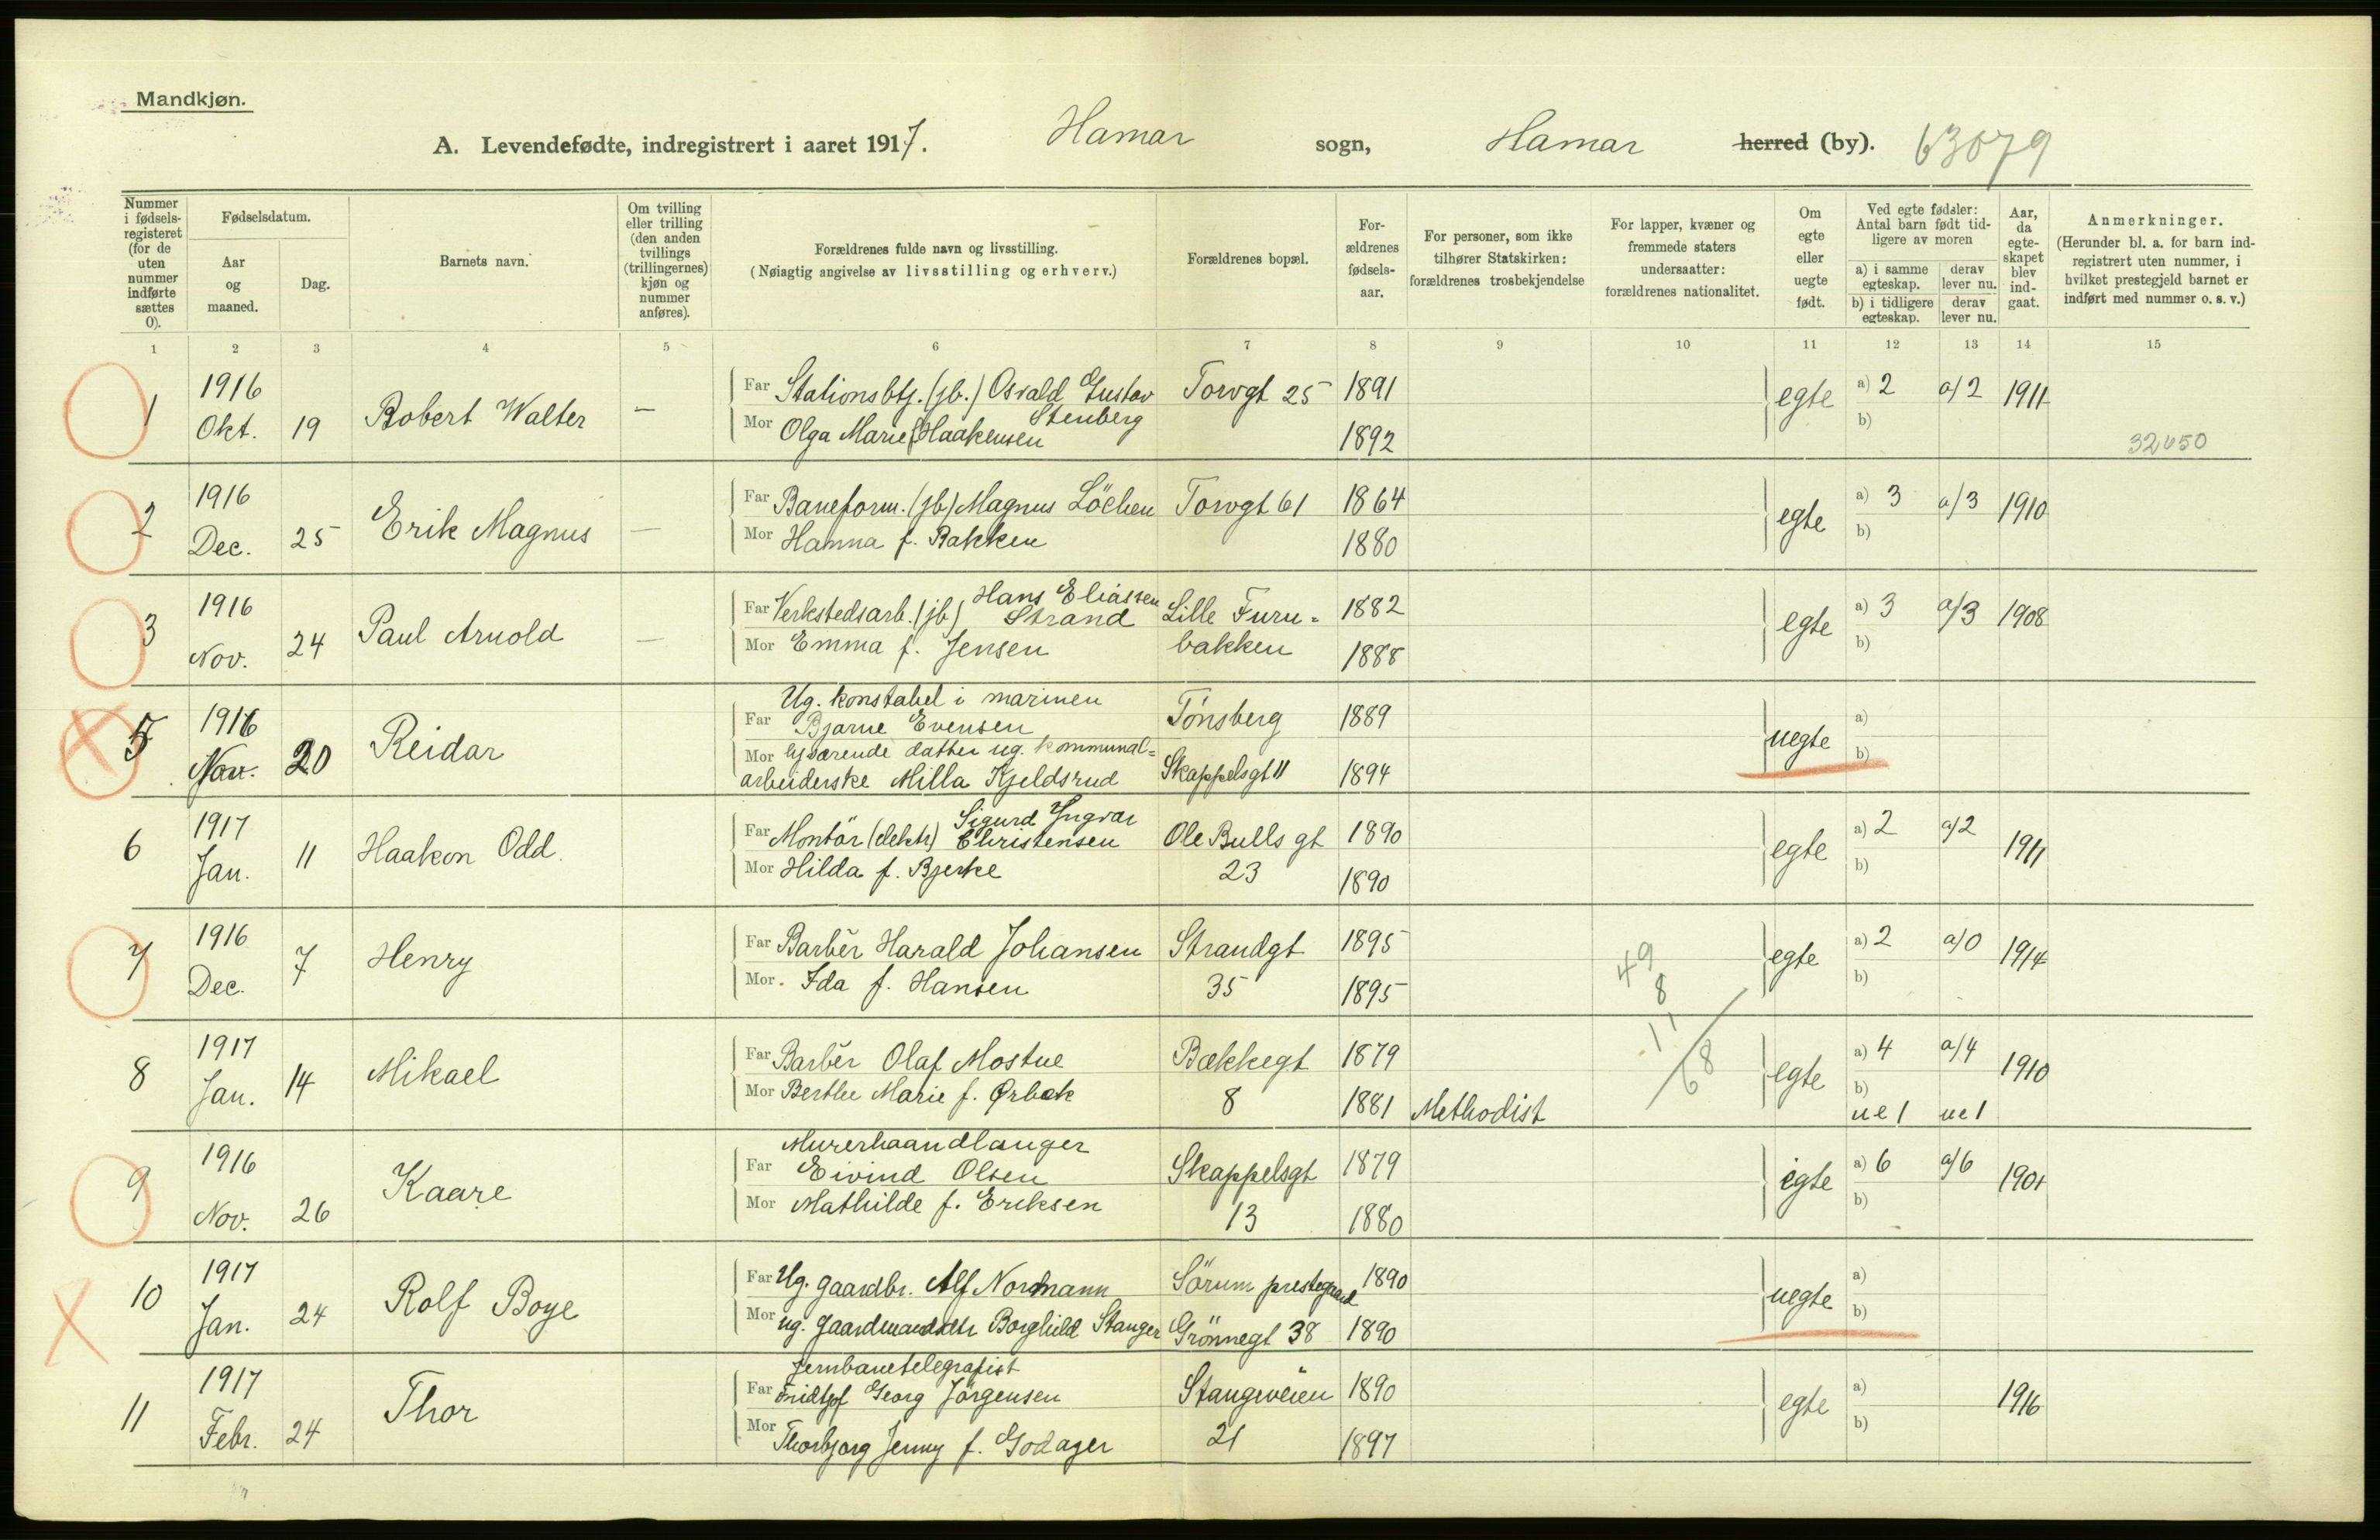 Mandkjøn.
A. Levendefødte, indregistrert i aaret 1917. Hamar sogn, Hamar herred (by). 63079
Nummer i fødsels-registeret (for de uten nummer indførte sættes 0).
Fødselsdatum.
Aar og maaned.
Dag.
Barnets navn.
Om tvilling eller trilling (den anden tvillings (trillingernes) kjøn og nummer anføres).
Forældrenes fulde navn og livsstilling.
(Nøiagtig angivelse av livsstilling og erhverv.)
Forældrenes bopæl.
For-ældrenes fødsels-aar.
For personer, som ikke tilhører Statskirken: forældrenes trosbekjendelse
For lapper, kvæner og fremmede staters undersaatter: forældrenes nationalitet.
Om egte eller uegte født.
Ved egte fødsler: Antal barn født tid-ligere av moren
a) i samme egteskap. derav lever nu.
b) i tidligere egteskap. derav lever nu.
Aar, da egte-skapet blev ind-gaat.
Anmerkninger.
(Herunder bl. a. for barn ind-registrert uten nummer, i hvilket prestegjeld barnet er indført med nummer o. s. v.)
1 2 3 4 5 6 7 8 9 10 11 12 13 14 15
1 1916 Okt. 19 Robert Walter —
Far Stationsbtj. (jb.) Osvald Gustav Stenberg Torvgt 25 1891
Mor Olga Marie f. Haakensen 1892
egte a) 2 b) a/2 1911 32650
2 1916 Dec. 25 Erik Magnus —
Far Baneform. (jb) Magnus Löchen Torvgt 61 1864
Mor Hanna f. Bakken 1880
egte a) 3 b) a/3 1910
3 1916 Nov. 24 Paul Arnold —
Far Verkstedsarb. (jb) Hans Eliassen Strand Lille Furu-
Mor Emma f. Jensen bakken 1882 1888
egte a) 3 b) a/3 1908
5 1916 Nov. 20 Reidar
Ug. konstabel i marinen
Far Bjarne Evensen Tönsberg 1889
Mor hjværende datter ug. kommunal=
arbeiderske Milla Kjeldsrud Skappelsgt 11 1894
uegte a) b)
6 1917 Jan. 11 Haakon Odd.
Far Montör (elektr) Sigurd Yngvar Christensen Ole Bulls gt 1890
Mor Hilda f. Bjerke 23 1890
egte a) 2 b) a/2 1911
7 1916 Dec. 7 Henry
Far Barbér Harald Johansen Strandgt 1895
Mor Ida f. Hansen 35 1895
egte a) 2 b) a/0 1914
49
8
11
68
8 1917 Jan. 14 Mikael
Far Barbér Olaf Mostue Bækkegt 1879
Mor Berthe Marie f. Ørbæk 8 1881 Methodist
egte a) 4 b) ue 1 a/4 ue 1 1910
9 1916 Nov. 26 Kaare
Murerhaandlanger
Far Eivind Olsen Skappelsgt 1879
Mor Mathilde f. Eriksen 13 1880
egte a) 6 b) a/6 1901
10 1917 Jan. 24 Rolf Boye
Far Ug. gaardbr. Alf Nordmann Sörum prestegaard 1890
Mor ug. gaardmandsdtr Borghild Stanger Grönnegt 38 1890
uegte a) b)
11 1917 Febr. 24 Thor
Jernbanetelegrafist
Far Fridtjof Georg Jörgensen Stangeveien 1890
Mor Thorbjørg Jenny f. Godager 21 1897
egte a) b) 1916